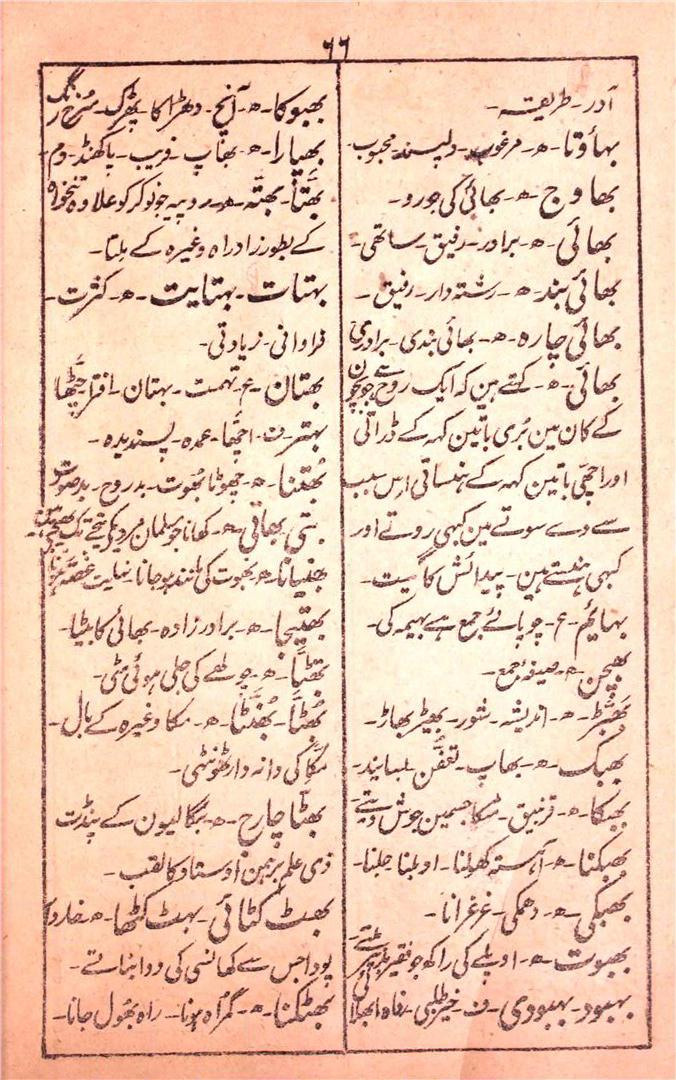 ۶۶
آدر۔ طریقہ۔
بہاؤتا۔ ھ۔ مرغوب۔ دلپسند۔ محبوب۔
بھاوج۔ ھ۔ بھائی کی جورو۔
بھائی۔ ھ۔ برادر۔ رفیق۔ ساتھی۔
بھائی بند۔ ھ۔ رشتہ دار۔ رفیق۔
بھائی چارہ۔ ھ۔ بھائی بندی۔ برادری
بھائی۔ ھ۔ کہتے ہین کہ ایک روح ہے جو بچون
کے کان مین بُری باتین کہہ کے ڈراتی
اور اچھی باتین کہہ کے ہنساتی اس سبب
سے دے سوتے مین کبہی روتے اور
کبہی ہنستے ہین۔ پیدائش کا گیت۔
بہائم۔ ع۔ چوپائے جمع ہے بہیمہ کی۔
بھبچن۔ ھ۔ صیغۂ جمع۔
بھبّڑ۔ ھ۔ اندیشہ۔ شور۔ بھیڑ بھاڑ۔
بھبک۔ ھ۔ بھاپ۔ تعفّن۔ بساہند۔
بھبکا۔ ھ۔ قرنبیق۔ مٹکا جسمین جوش دیتے۔
بھبکنا۔ ھ۔ آہستہ کھولنا۔ اوبلنا۔ جلنا۔
بھبکی۔ ھ۔ دھمکی۔ غرغرانا۔
بھبوت۔ ھ۔ اوپلے کی راکھ جو فقیر بدن پر ملتے۔
بہبود۔ بہبودی۔ ف۔ خیر طلبی۔ رفاہ۔ بھلائی
بھبوکا۔ ھ۔ آنچ۔ دھڑاکا۔ بھڑک۔ سُرخ رنگ
بھپارا۔ ھ۔ بھاپ۔ فریب۔ پاکھنڈ۔ دم۔
بھتّا۔ بھتّہ۔ ھ۔ روپیہ جو نوکر کو علاوہ تنخواہ
کے بطور زاد راہ وغیرہ کے ملتا۔
بہتات۔ بہتایت۔ ھ۔ کثرت۔
فراوانی۔ زیادتی۔
بہتان۔ ع۔ تہمت۔ بہتان۔ افترا۔
بہتر۔ ف۔ اچھا۔ عمدہ۔ پسندیدہ۔
بُھتنا۔ ھ۔ چھوٹا بُھوت۔ بدروح۔ بدصورت
بتی بھاتی۔ ھ۔ کھانا جو مسلمان مردیکے تیجے تک بھیجتے ہین
بھتیانا۔ ھ۔ بھوت کی مانند ہو جانا۔ نہایت غصّہ ہونا
بھتیجا۔ ھ۔ برادرزادہ۔ بھائی کا بیٹا۔
بھٹّا۔ ھ۔ چولھے کی جلی ہوئی مٹی۔
بُھٹّا۔ بُھنٹّا۔ ھ۔ مکا وغیرہ کے بال۔
مکّا کی دانہ دار ٹھونٹی۔
بھٹاچارج۔ ھ۔ بنگالیون کے پنڈت
ذی علم برہمن اوستاد کا لقب۔
بھٹ کٹائی۔ بھٹ کٹھا۔ ھ۔ خاردار
پودا جس سے کھانسی کی دوا بناتے۔
بھٹکنا۔ ھ۔ گمراہ ہونا۔ راہ بھول جانا۔